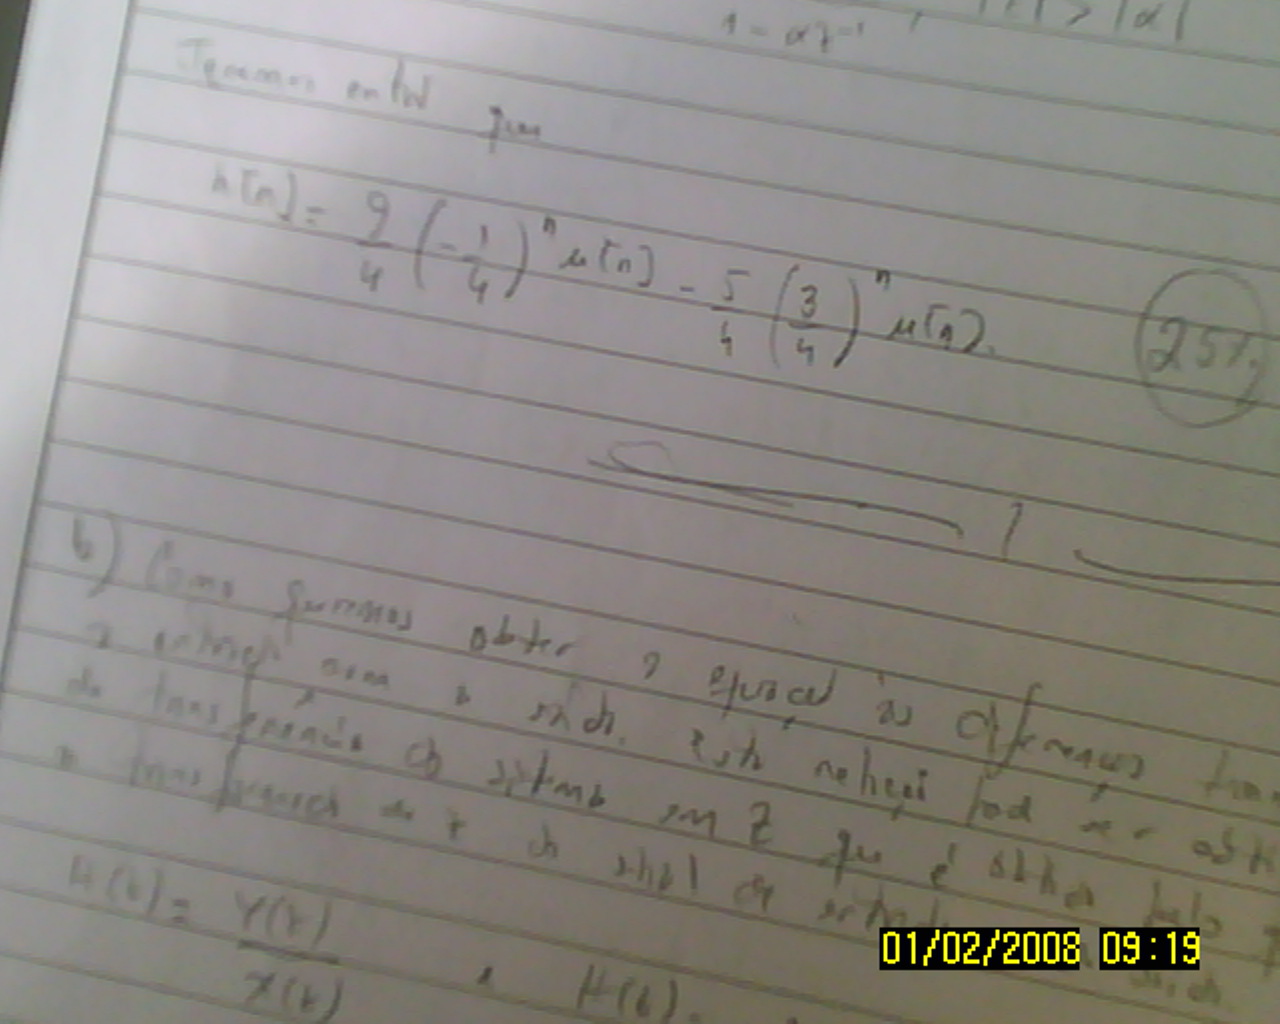 1 - αz⁻¹ , |z| > |α|
Teremos então que
h[n] = 9/4 (-1/4)ⁿ μ[n] - 5/4 (3/4)ⁿ μ[n].
25%
b) Como queremos obter a equação às diferenças
a entrada com a saída. Esta relação pode ser
de transferência do sistema em Z que é obtida pela
a transformada de z do sinal de entrada
H(z) = Y(z)/X(z) H(z).
01/02/2008 09:19